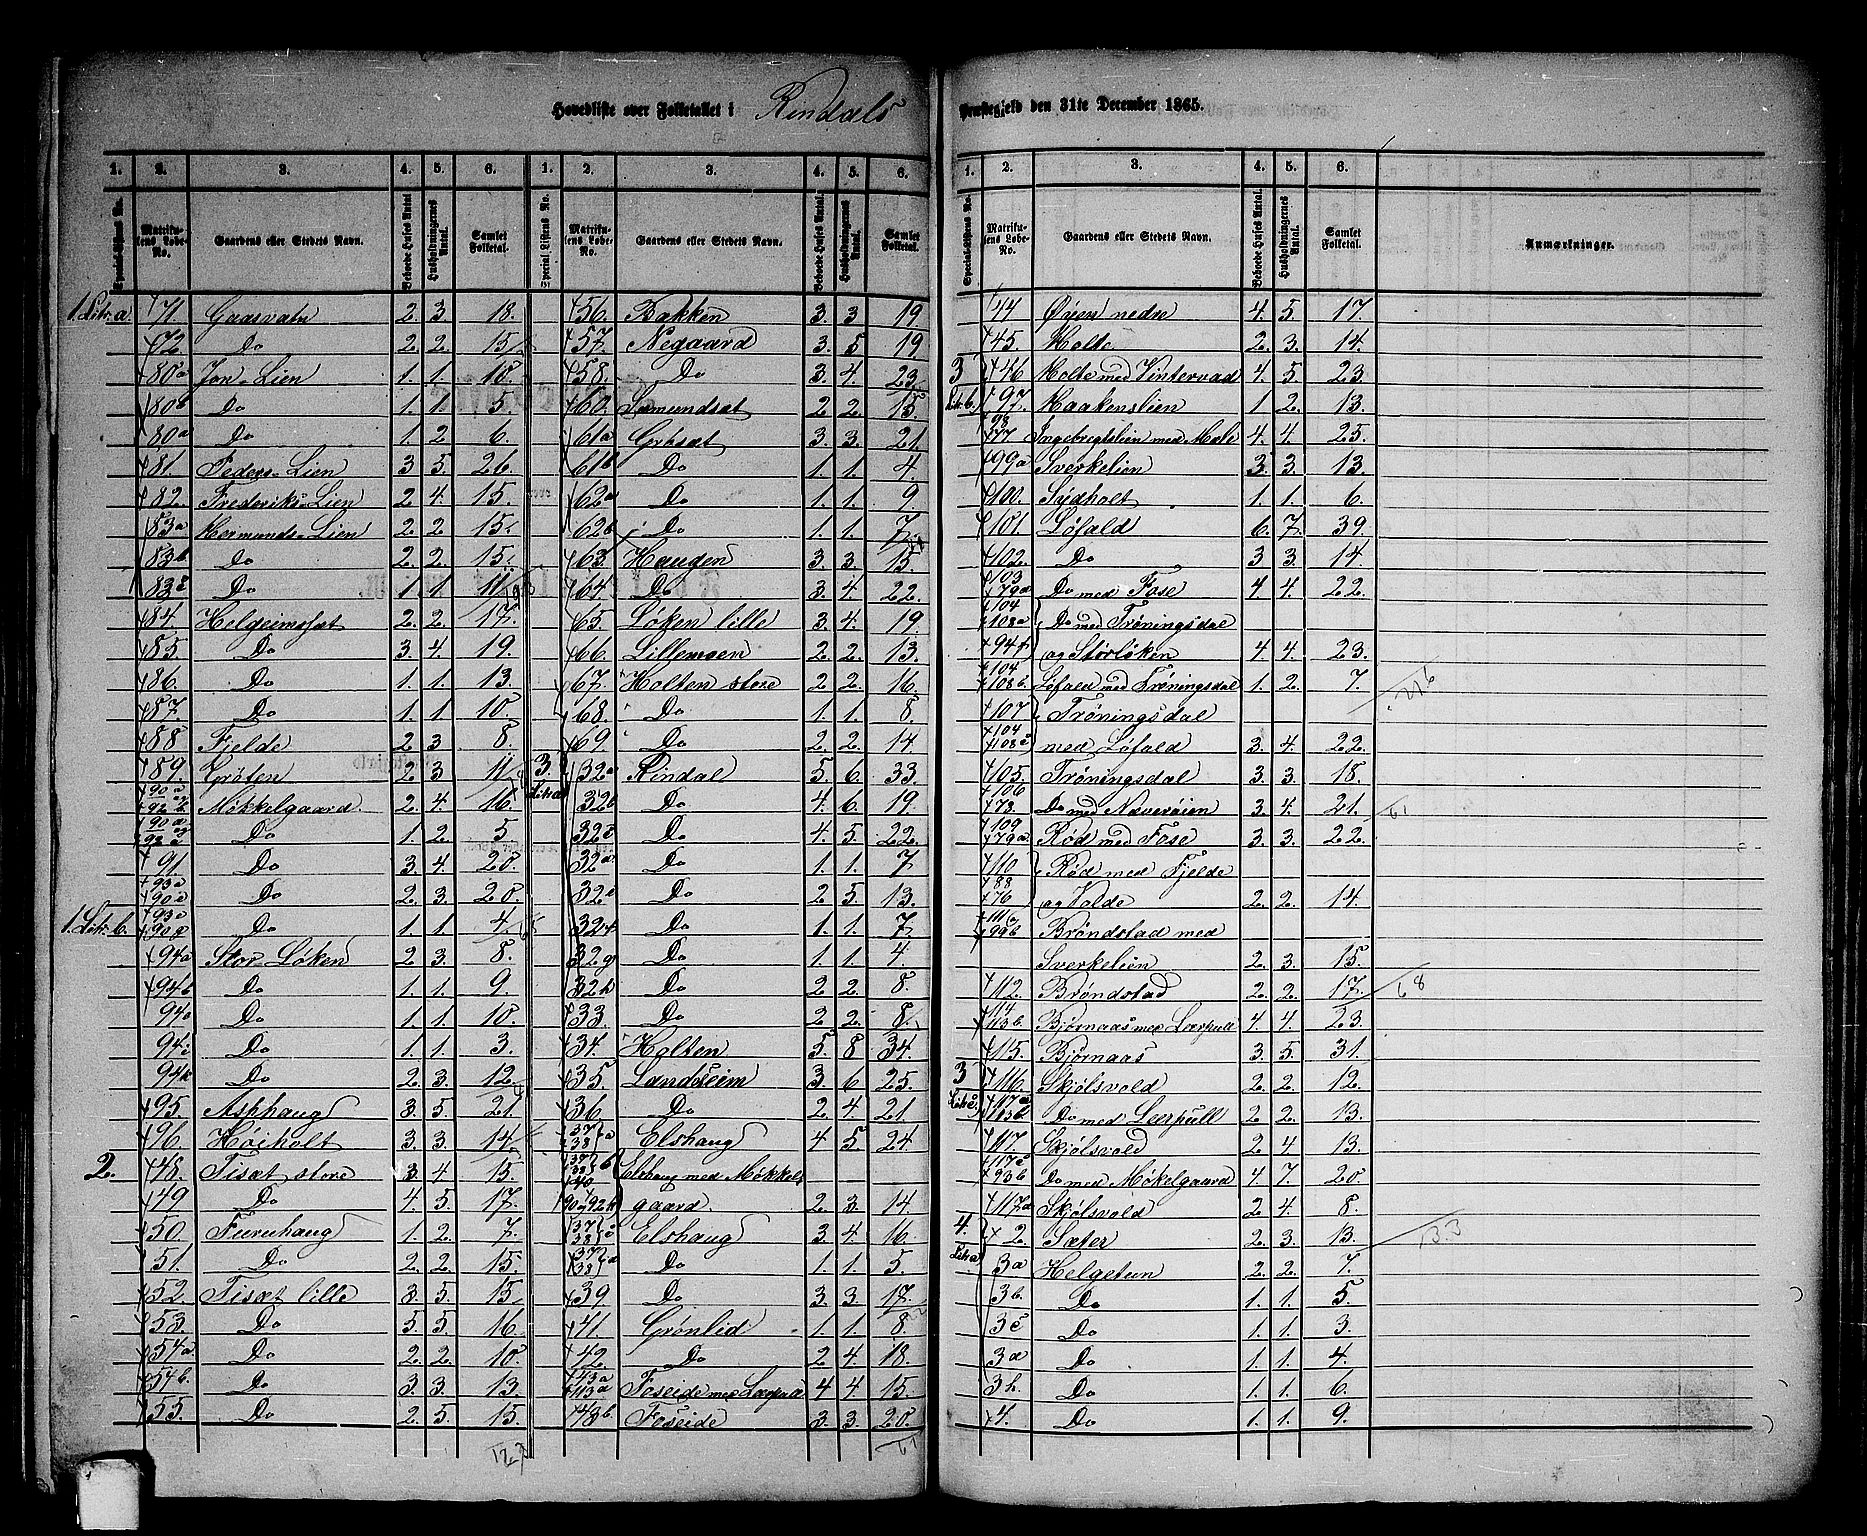 Hovedliste over Folketallet i Rindals Præstegjeld den 31te December 1865.
1. 2. 3. 4. 5. 6. 1. 2. 3. 4. 5. 6.
Special-Listens No. Matrikulens Løbe-No. Gaardens eller Stedets Navn. Beboede Huses Antal. Husholdningernes Antal. Samlet Folketal. Special-Listens No. Matrikulens Løbe-No. Gaardens eller Stedets Navn. Beboede Huses Antal. Husholdningernes Antal. Samlet Folketal.
1. Litr. a 71. Gaasvatn 2. 3. 18.
72. Do 2. 2. 15.
80a Jon-Lien 1. 1. 10.
80b Do 1. 1. 5.
80a Do 1. 2. 6.
81. Peders-Lien 3. 5. 26.
82. Frederiks-Lien 2. 4. 15.
83a Hermunds-Lien 2. 2. 15.
83b Do 2. 2. 15.
83c Do 1. 1. 11.
84. Helgeimsæt 2. 2. 17.
85. Do 3. 4. 19.
86. Do 1. 1. 13.
87. Do 1. 1. 10.
88 Fjelde 2. 3 8.
89. Grøten 2. 3 11
Møkkelgaard 2. 4. 16.
Do 1. 2. 5
91 Do 3. 4. 20.
93a 90c Do 2. 3. 20.
1. Litr. b. Do 1. 1. 4.
94a Stor-Løken 2. 3. 8.
94b Do 1. 1. 9.
Do 1. 1. 10.
Do 1. 1. 3.
Do 2. 3. 12.
95. Asphaug 3. 5. 21.
96. Høiholt 3. 3. 14.
2. 48. Tisæt store 3. 4 15.
49 Do 4. 5. 17.
50. Furuhaug 1. 2. 7.
51. Do 2. 2. 15.
52. Tisæt lille 3. 5. 15
53. Do 5. 5. 16.
54a. Do 2. 2. 10.
54b. Do 3. 3. 13.
55. Do 2. 5. 15.
123
56. Bakken 3. 3 19
57. Negaard 3. 5 19
58. Do 3. 4. 23.
60. Sæmundsæt 2. 2. 15
61a Grøsæt 3. 3. 21.
61b Do 1. 1. 4.
62a Do 1. 1. 9
62b Do 1. 1. 7.
63. Haugen 3. 3. 15.
64. Do 3. 4 22.
65. Løken lille 3. 4. 19.
66. Lillemoen 2. 2. 13.
67. Holten store 2. 2. 16.
68. Do 1. 1. 8.
69. Do 2. 2. 14.
3. Litr. a 32a Rindal 5. 6. 33.
32b Do 4. 6. 19.
32c Do 4. 5. 22.
32d Do 1. 1. 7
32e Do 2. 5. 13.
32f Do 1. 1. 7.
32g Do 1. 1. 4.
32h Do 2. 2. 8.
33. Do 2. 2. 8.
34. Holten 5. 8 34.
35. Landseim 3. 6 25.
36 Do 2. 4 21.
37 38 a Elshaug 4. 5. 24.
37 38 40 b Elshaug med Møkkel-
90 92b gaard. 2. 3. 14
37 38 c Elshaug 3. 4 16.
37 38 d Do 1. 1. 5.
39 Do 3. 3. 17.
41 Grønlid 1. 1. 8.
42. Do 2. 4. 18.
43a 113a Foseide med 4 4. 15.
43b Foseide 3. 3. 20.
61
1. 2. 3. 4. 5. 6.
Special-Listens No. Matrikulens Løbe-No. Gaardens eller Stedets Navn. Beboede Huses Antal. Husholdningernes Antal. Samlet Folketal. Anmærkninger.
44 Øien nedre 4. 5. 17.
45 Holte 2. 3. 14.
3 46 Holte med Vintervad 4. 5. 23.
Litr. b. 97. Haakenslien 1. 2. 13.
98 77 Ingebregtslien med Hale 4. 4. 25.
99a Sverkelien 3. 3. 13.
100. Sydholt 1. 1. 6.
101. Løfald 6. 7. 39.
102. Do 3 3. 14.
103 79a Do med Fose 4 4. 22.
104 108a Do med Trøningsdal
94f og Storløken 4. 4. 23.
104 108b. Løfald med Trøningsdal 1. 2. 7. 216
107 Trøningsdal
104 108c med Løfald 3. 4. 22.
105. Trøningsdal 3. 3. 18.
106 73. Do med Næverøien 3. 4. 21. 61
109 79a Rød med Fose 3. 3. 22.
110 Rød med Fjelde
88 76 og Volde 2. 2. 14.
111 99b Brøndstad med
Sverkelien 2. 3. 15.
112. Brøndstad 2. 2. 17. 68
114 113b. Bjørnaas med Leerpull 4. 4. 23.
115. Bjørnaas 3. 5. 31.
3 116. Skjølsvold 2. 2. 12.
Litr. c. Do med Leerpull 2. 2. 13.
117. Skjølsvold 2. 4. 13.
117c 93b Do med Møkelgaard 4. 7. 20.
117d Skjølsvold 2. 4. 8.
4. 2. Sæter 2. 3. 13. 133
Litr. a 3a Helgetun 2. 2. 7.
3b. Do 1. 1. 5.
3c Do 1. 1. 3.
3d Do 1. 1. 4.
3h. Do 1. 1. 6.
4. Do 1. 1. 9.